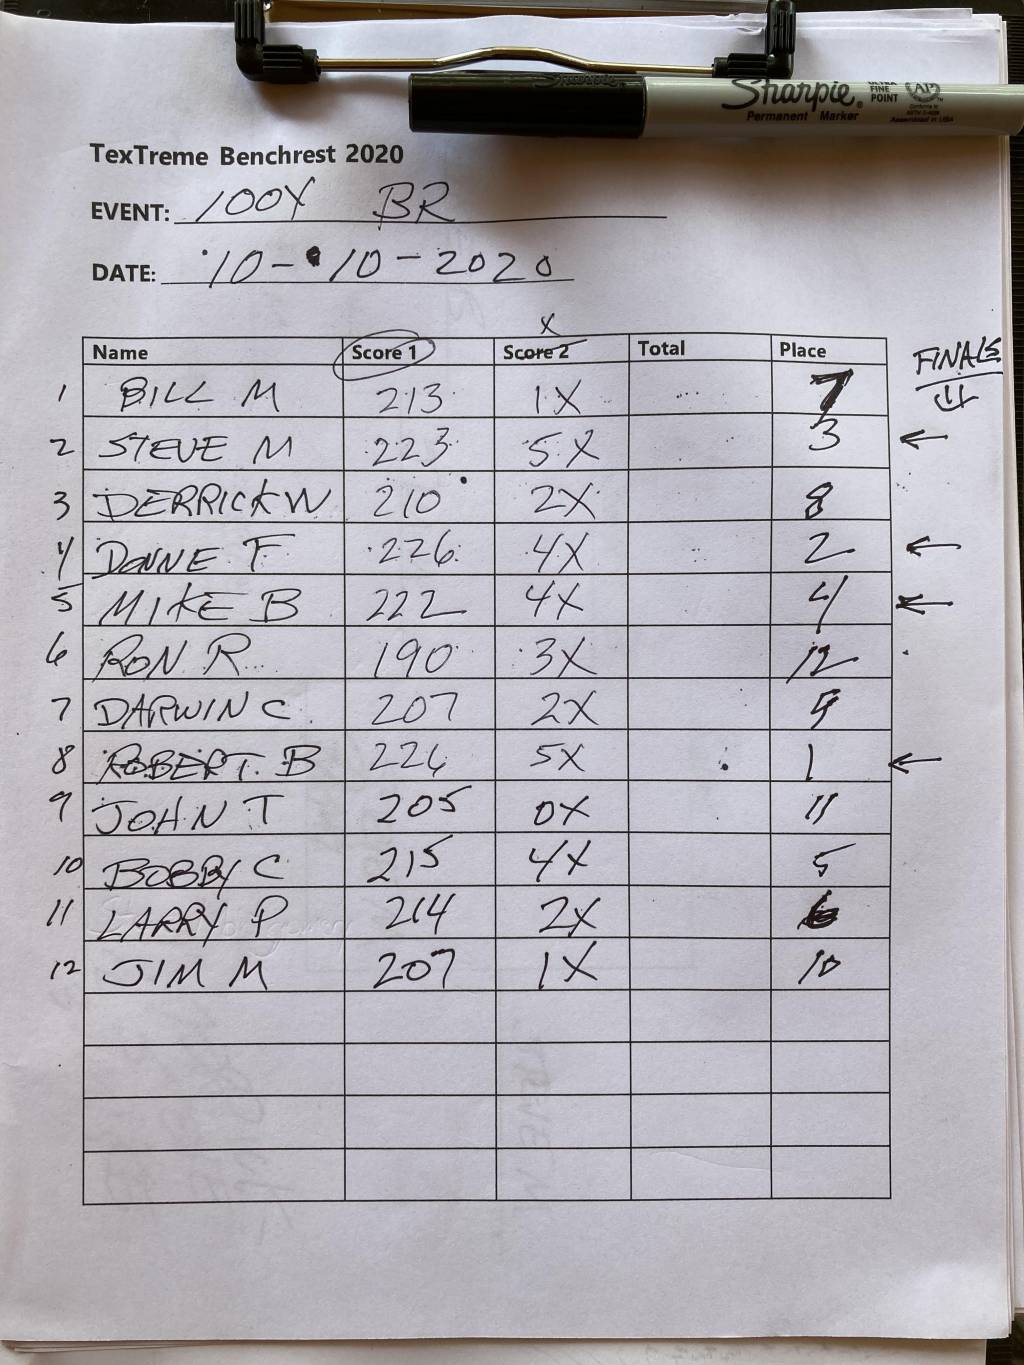 Sharpie
Sharpie® ULTRA FINE POINT AP
Permanent Marker
TexTreme Benchrest 2020
EVENT: 100Y BR
DATE: 10-10-2020
X
Name Score 1 Score 2 Total Place FINALS
1 BILL M 213 1X 7
2 STEVE M 223 5X 3 ←
3 DERRICK W 210 2X 8
4 DONNE F 226 4X 2 ←
5 MIKE B 222 4X 4 ←
6 RON R 190 3X 12
7 DARWIN C 207 2X 9
8 ROBERT B 226 5X 1 ←
9 JOHN T 205 0X 11
10 BOBBY C 215 4X 5
11 LARRY P 214 2X 6
12 JIM M 207 1X 10